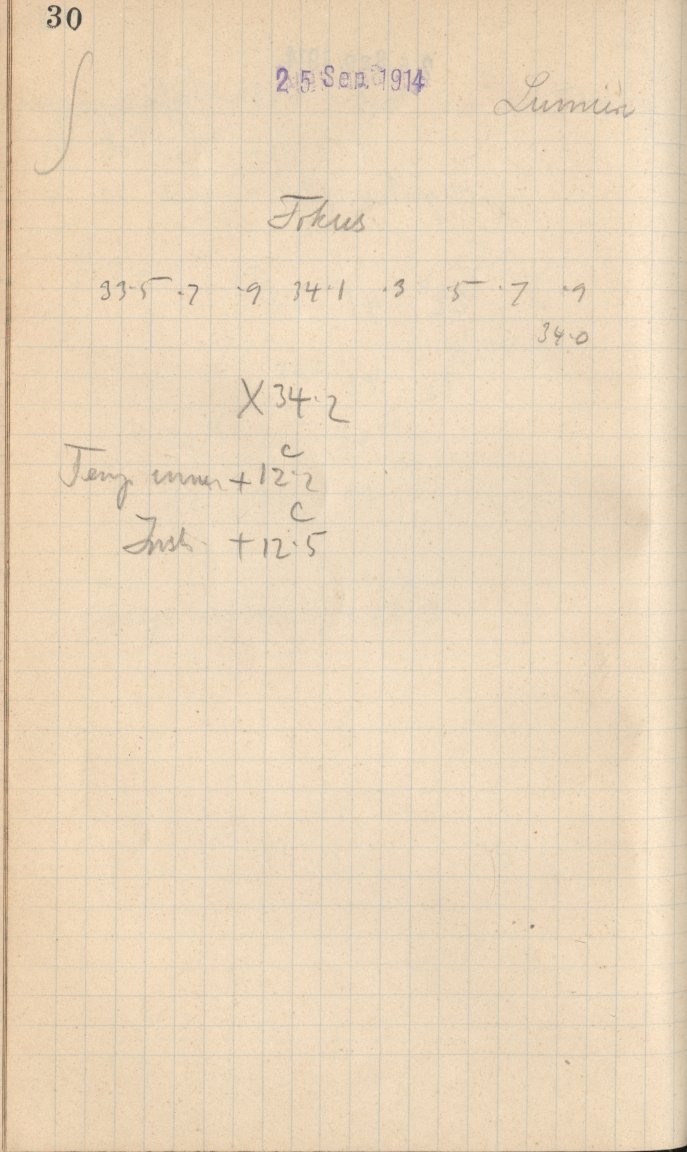 30
25 Sep. 1914
Lumier
Fokus
33.5 .7 .9 34.1 .3 .5 .7 .9
34.0
X 34.2
C
Temp inner + 12.2
C
Inst. + 12.5